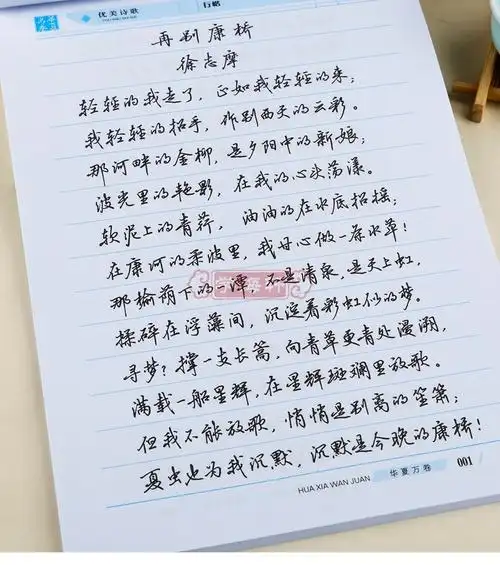 优美诗歌
行楷
再别康桥
徐志摩
轻轻的我走了，正如我轻轻的来；
我轻轻的招手，作别西天的云彩。
那河畔的金柳，是夕阳中的新娘；
波光里的艳影，在我的心头荡漾。
软泥上的青荇，油油的在水底招摇；
在康河的柔波里，我甘心做一条水草！
那榆荫下的一潭，不是清泉，是天上虹，
揉碎在浮藻间，沉淀着彩虹似的梦。
寻梦？撑一支长篙，向青草更青处漫溯，
满载一船星辉，在星辉斑斓里放歌。
但我不能放歌，悄悄是别离的笙箫；
夏虫也为我沉默，沉默是今晚的康桥！
HUA XIA WAN JUAN
华夏万卷
001